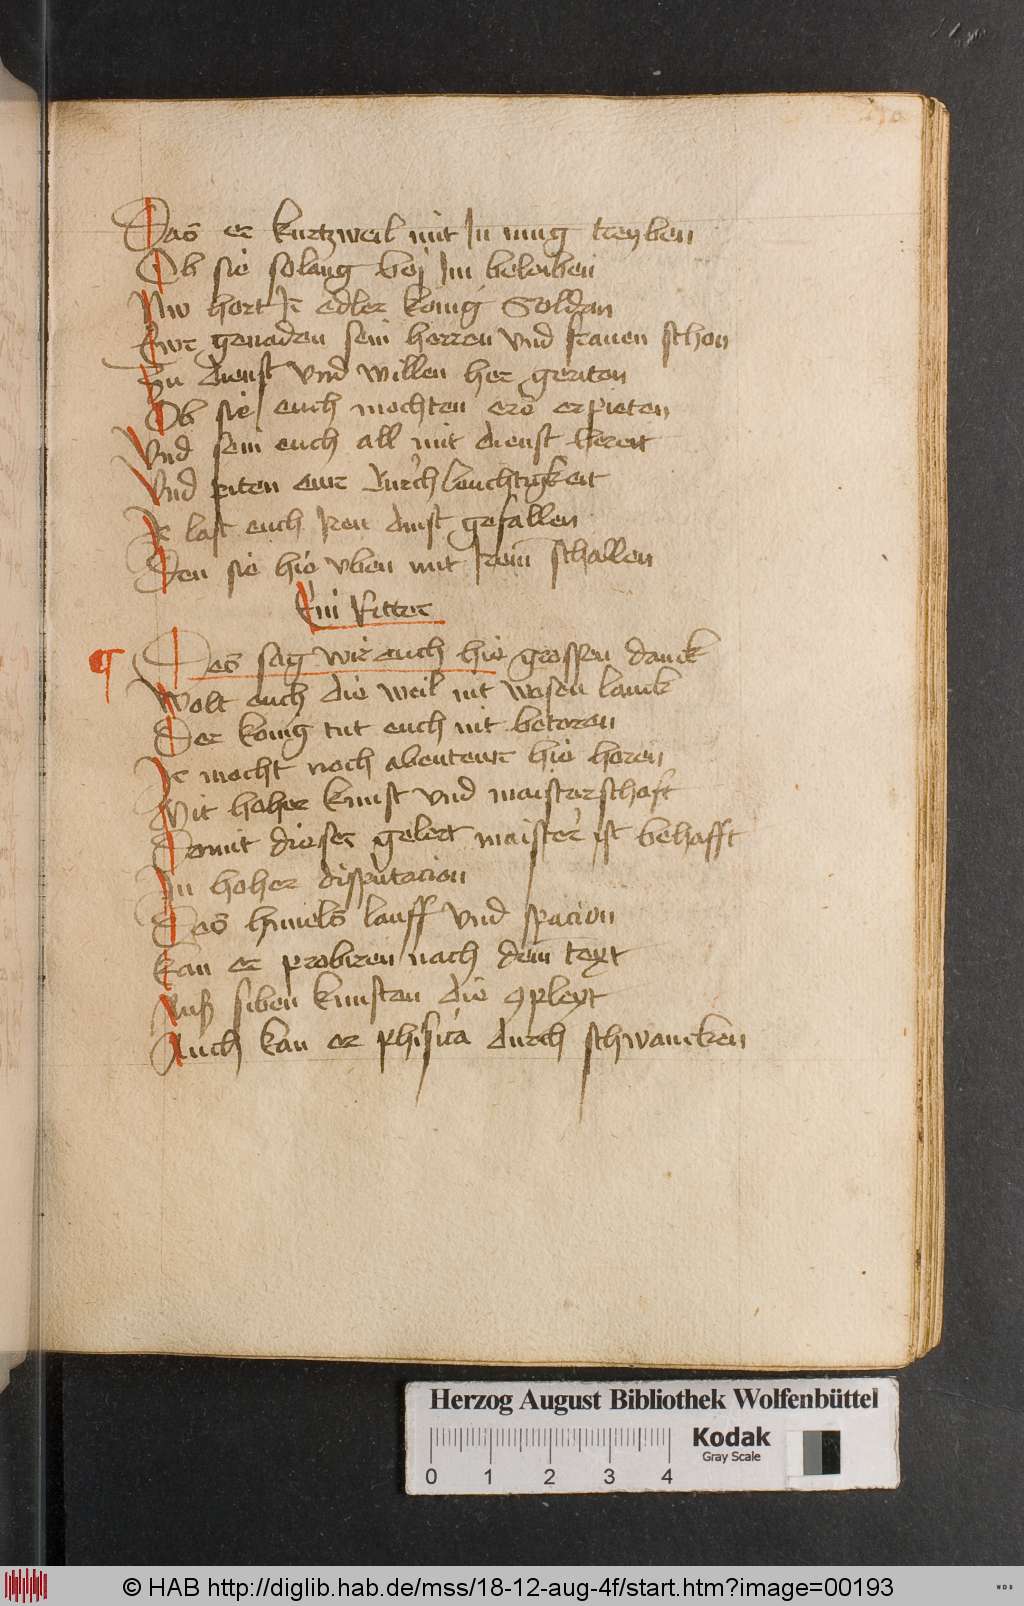 Das er kurtzweil mit In mug treyben
Ob sie solang bej Im beleiben
Nw hort Ir edler konig Soldan
Ewr genaden sein herren vnd frauen schon
Zu dienst vnd willen her geriten
Ob sie euch mochten ere erpieten
Vnd sein euch all mit dienst bereit
Vnd piten eur durchleuchtigkeit
Ir last euch Iren dinst gefallen
Den sie hie vben mit Irem schallen
Ein Ritter
Des sag wir euch hie grossen danck
Wolt euch die weil nit wesen lanck
Der konig tut euch nit betoren
Ir mocht noch abenteur hie horen
Mit hoher kunst vnd maisterschaft
Domit dieser gelert maister ist behafft
In hoher disputacion
Des himels lauff vnd spacion
Kan er probiren nach dem text
Auß siben kunsten die 9plext
Auch kan er phisica durch schwancken
Herzog August Bibliothek Wolfenbüttel
0 1 2 3 4
Kodak
Gray Scale
© HAB http://diglib.hab.de/mss/18-12-aug-4f/start.htm?image=00193